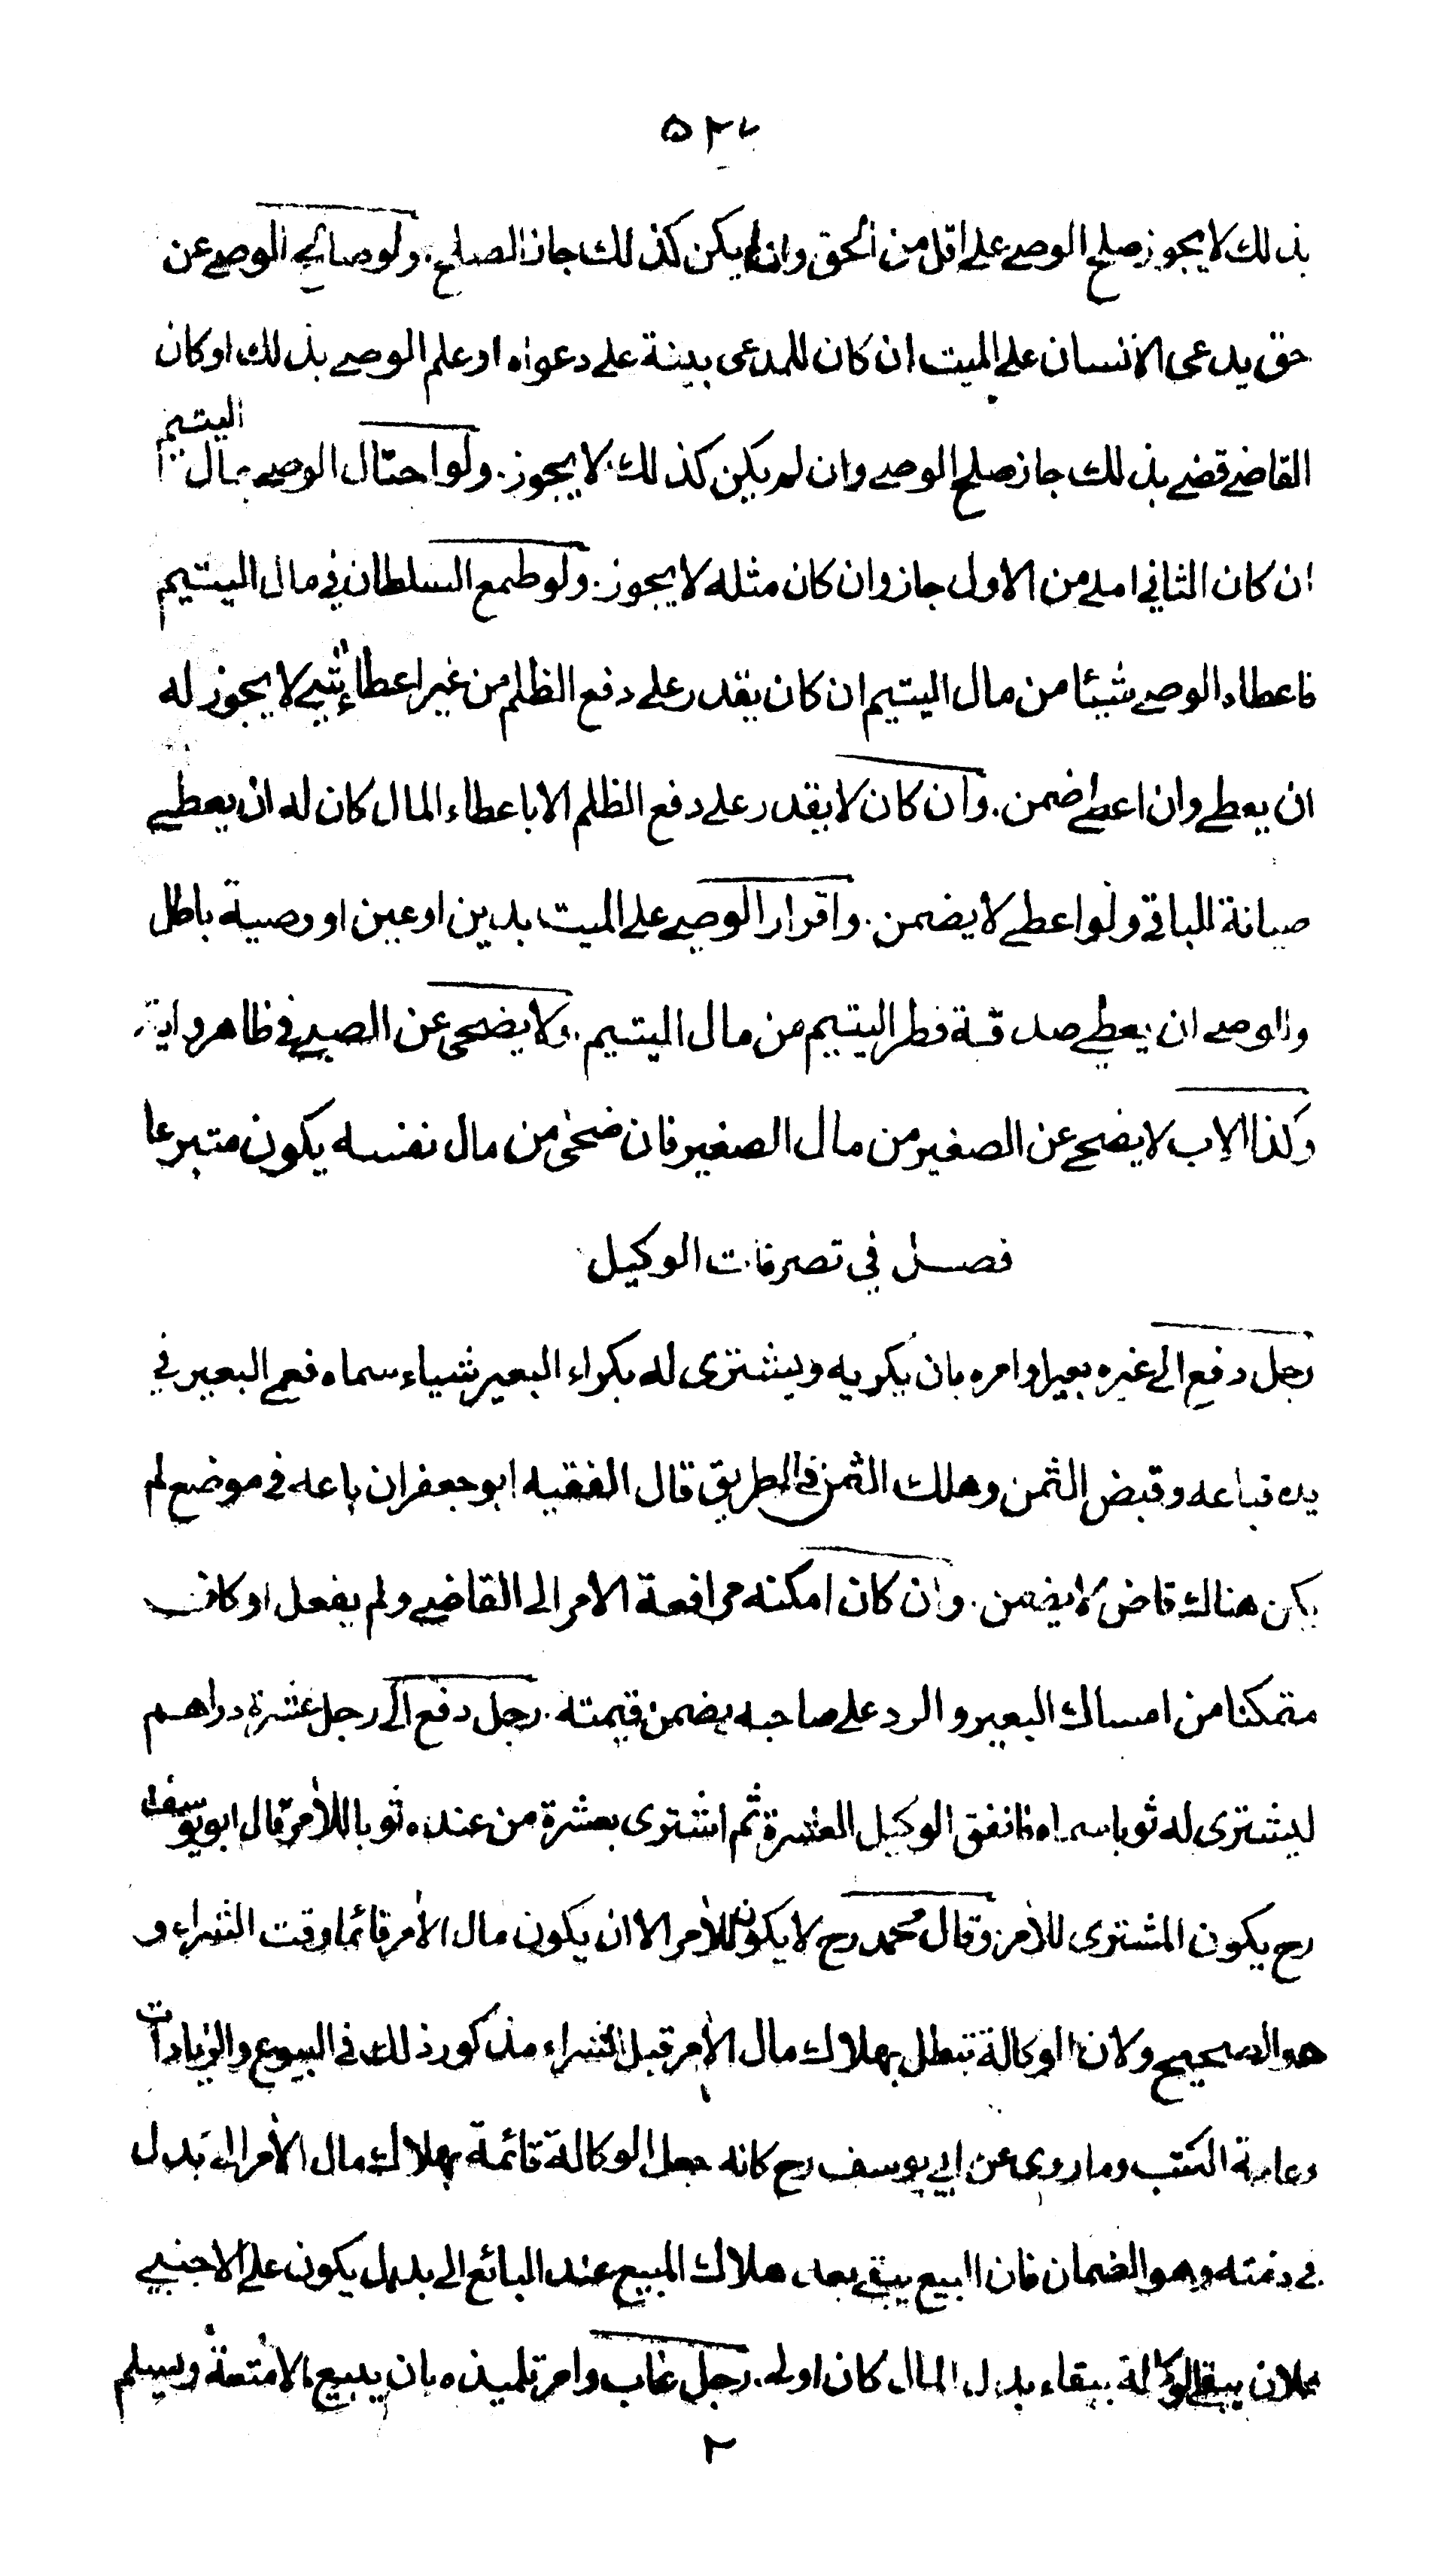 ٥٢٧
بذلك لا يجوز صلح الوصے علے اقل من الحق وان لم يكن كذلك جاز الصلح. ولو صالح الوصے عن
حق يدعی الانسان علے الميت ان كان للمدعی بينة علے دعواه او علم الوصے بذلك او كان
القاضے قضے بذلك جاز صلح الوصے وان لم يكن كذلك لا يجوز. ولو احتال الوصے بمال اليتيم
ان كان الثاني املے من الاول جاز وان كان مثله لا يجوز. ولو طمع السلطان في مال اليتيم
فاعطاه الوصے شيئا من مال اليتيم ان كان يقدر علے دفع الظلم من غير اعطاء شیٔ لا يجوز له
ان يعطے وان اعطے ضمن. وان كان لا يقدر علے دفع الظلم الا باعطاء المال كان له ان يعطے
صيانة للباقے ولو اعطے لا يضمن. واقرار الوصے علے الميت بدين او عين او وصية باطل
وللوصے ان يعطے صدقة فطر اليتيم من مال اليتيم. ولا يضحی عن الصبے في ظاهر رواية
وكذا الاب لا يضحے عن الصغير من مال الصغير فان ضحی من مال نفسه يكون متبرعا
فصل في تصرفات الوكيل
رجل دفع الے غيره بعيرا وامره بان يكريه ويشتری له بكراء البعير شياء سماه فعمے البعير في
يده فباعه وقبض الثمن وهلك الثمن في الطريق قال الفقيه ابو جعفر ان باعه في موضع لم
يكن هناك قاض لا يضمن. وان كان امكنه مرافعة الامر الی القاضے ولم يفعل او كان
متمكنا من امساك البعير والرد علے صاحبه يضمن قيمته. رجل دفع الے رجل عشرة دراهم
ليشتری له ثوبا سماه فانفق الوكيل العشرة ثم اشتری بعشرة من عنده ثوبا للآمر قال ابو يوسف
رح يكون المشتری للآمر وقال محمد رح لا يكون للآمر الا ان يكون مال الآمر قائما وقت الشراء و
هو الصحيح ولان الوكالة تبطل بهلاك مال الآمر قبل الشراء مذكور ذلك في البيوع والزيادات
وعامة الكتب وما روی عن ابی يوسف رح كانه جعل الوكالة قائمة بهلاك مال الآمر الے بدل
في ذمته وهو الضمان فان البيع يبقے بعد هلاك المبيع عند البائع الی بدل يكون علے الاجنبے
فلان يبقے الوكالة ببقاء بدل المال كان اولے. رجل غاب وامر تلميذه بان يبيع الامتعة ويسلم
٢